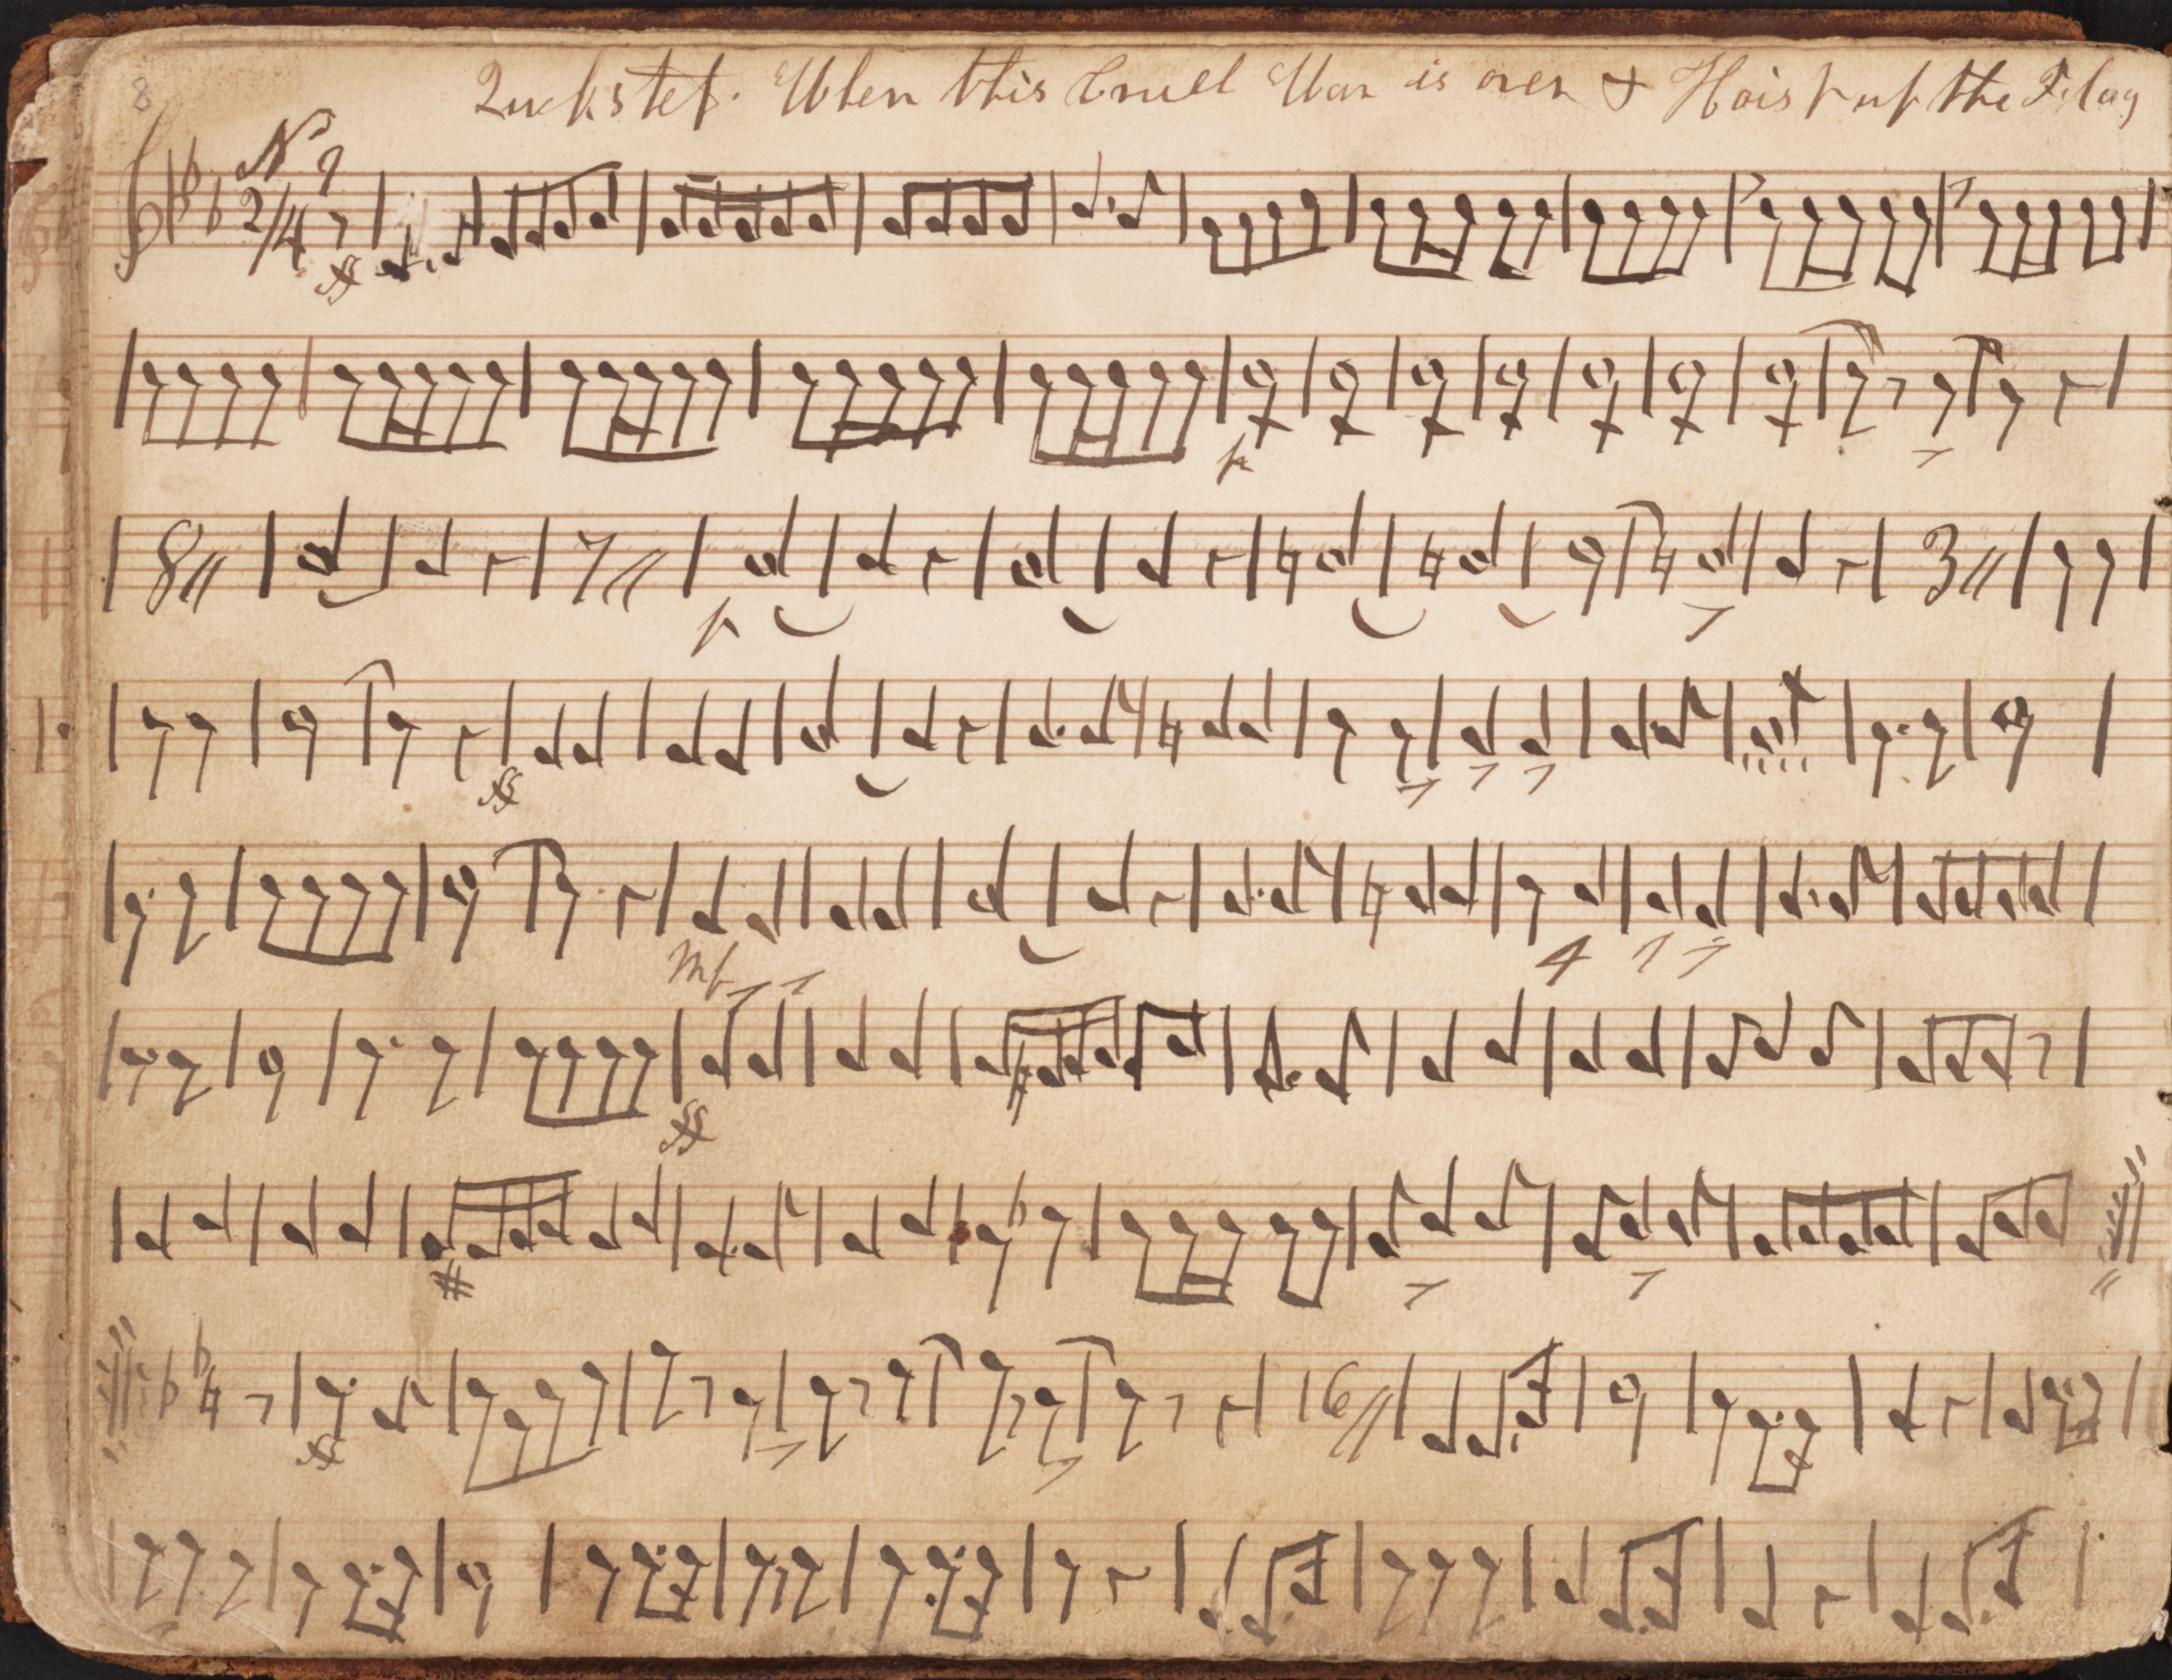 8
Quckstep. When this Cruel War is over & Hoist up the Flag
N 9
2/4
ff
p
8 7 3
p
ff
mf
ff
16
ff